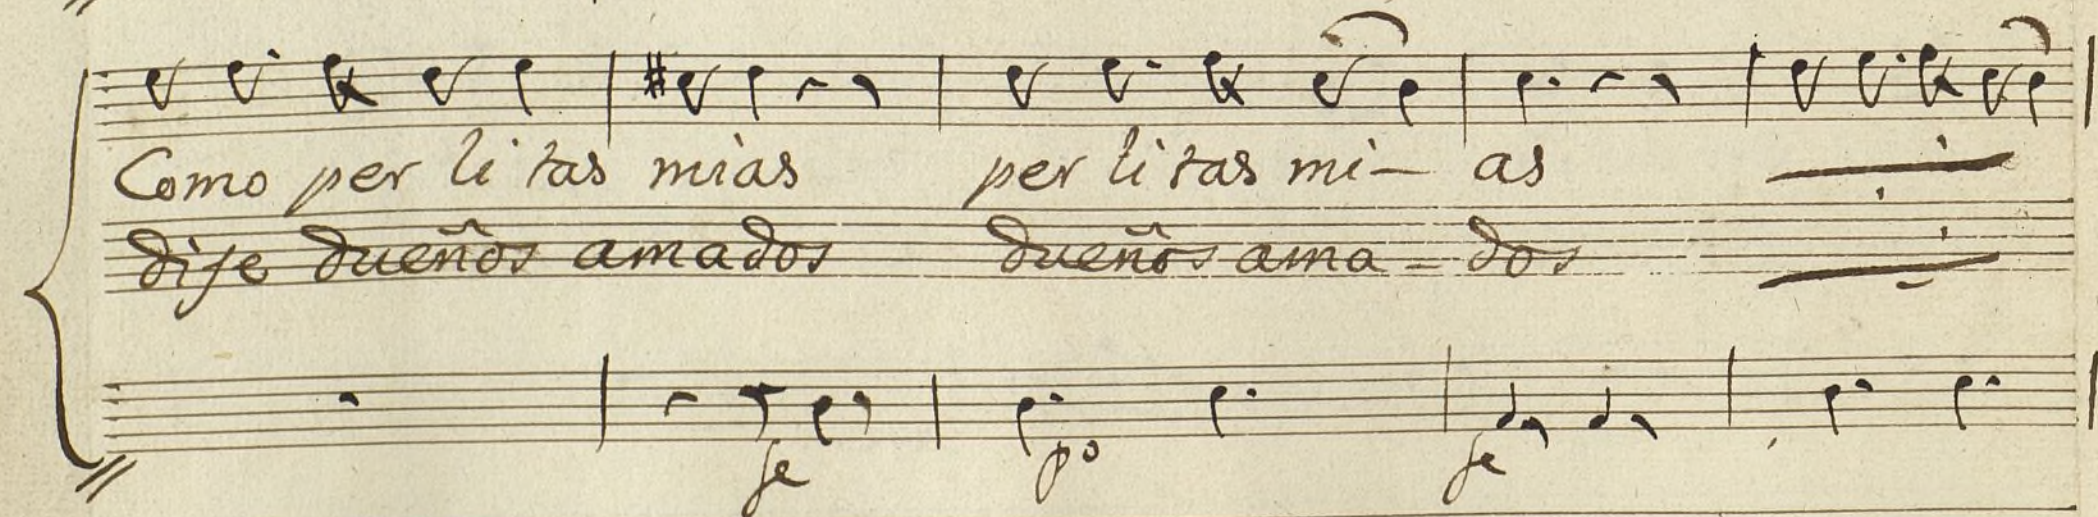 Como per li tas mias per li tas mi - as
dije dueños amados dueños ama - dos
fe po fe